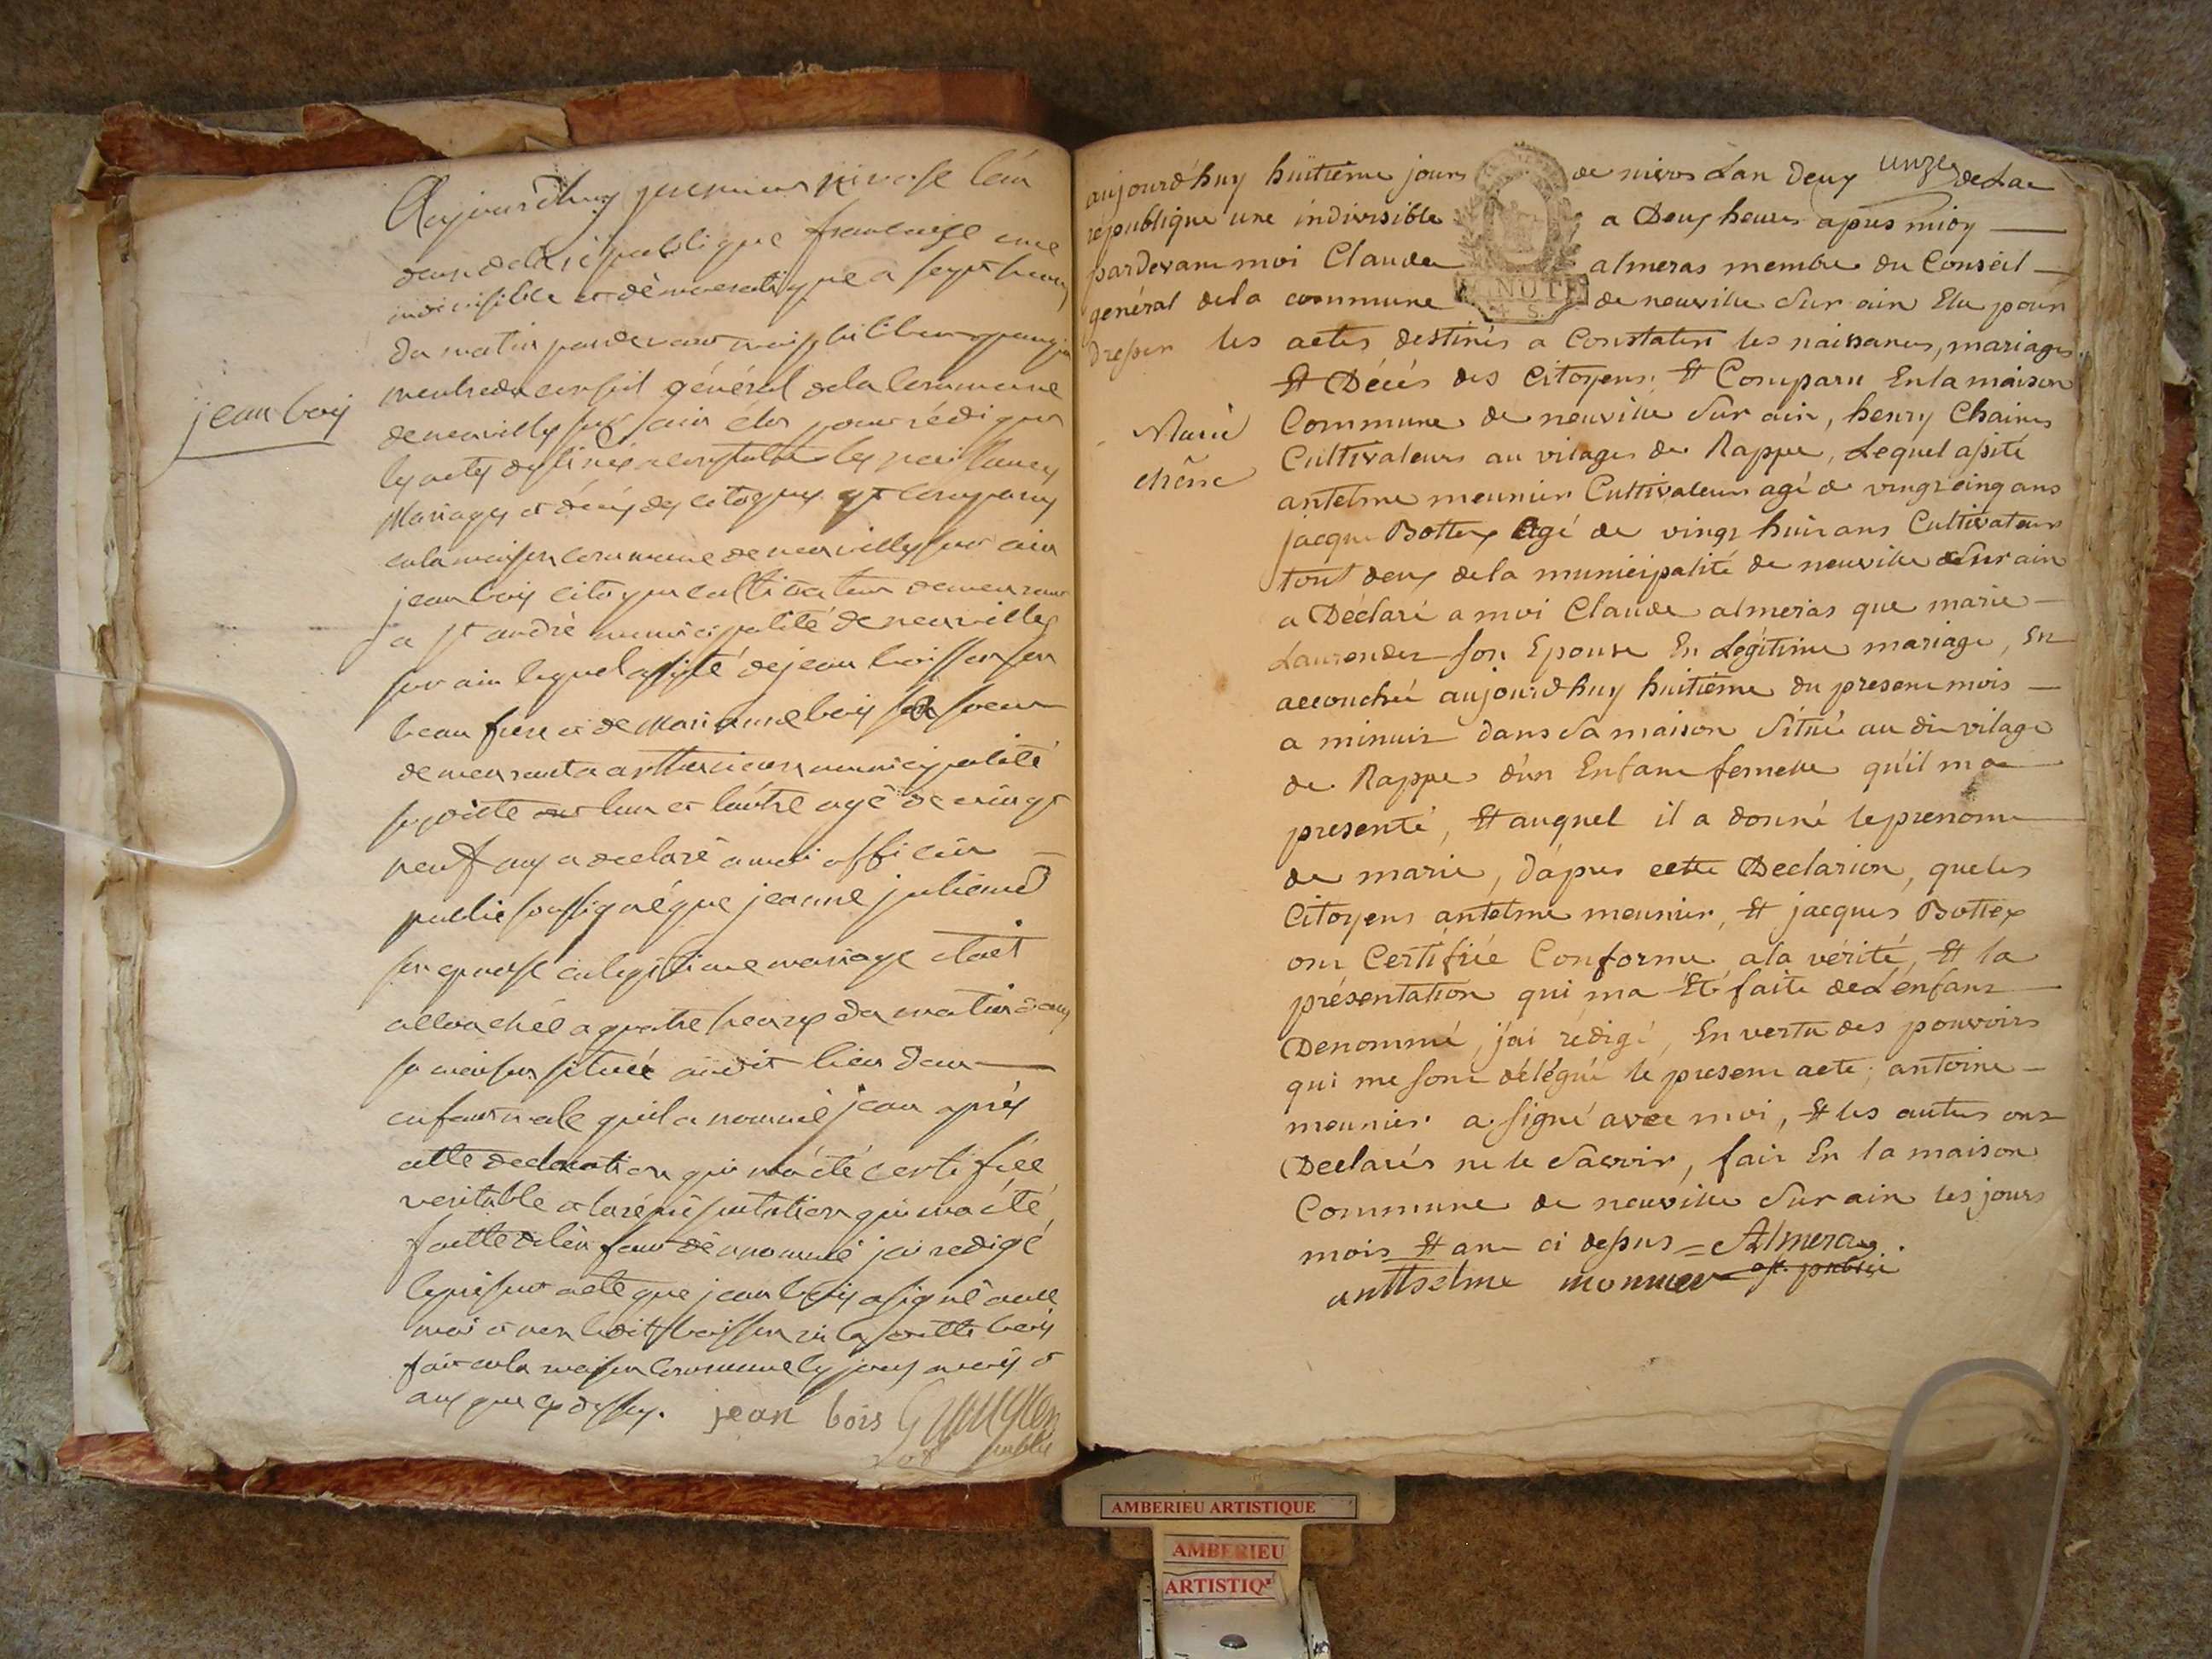 Aujourd'huy premier nivose l'an
deux de la république francaise une
indivisible et démocratique a sept heures
du matin pardevant moi philibert
membre du conseil général de la Commune
jean bois
de neuville sur ain élu pour rédiger
les actes destinés a constater les naissances
Mariages et décés des citoyens est comparu
en la maison commune de neuville sur ain
jean bois citoyen cultivateur demeurant
a st andré municipalité de neuville
sur ain lequel assisté de jean boisson son
beau frere et de Marianne bois sa soeur
demeurant a municipalité
susditte l'un et lautre agé de vingt
neuf ans a declaré a moi officier
public soussigné que jeanne julienne
son epouse en legitime mariage etoit
accouchée a quatre heures du matin dans
sa maison située audit lieu d'un
enfant male qu'il a nommé jean aprés
cette declaration qui m'a été certifiée
veritable et la représentation qui m'a été
faitte de l'enfant dénommé j'ai redigé
le présent acte que jean bois a signé avec
moi et non ledit boisson ni la ditte bois
fait en la maison Commune les jours mois et
ans que cy dessus. jean bois
public
aujourd'huy huitieme jours de nivos Lan deux unze de La
république une indivisible a Deux heures apres midy
pardevant moi Claude almeras membre du Conseil
MINUT
4 S.
général de la commune de neuville Sur ain Elu pour
dresser les actes destinés a Constater les naissances, mariages
Et Décés des Citoyens Est Comparu En la maison
Marie
chêne
Commune de neuville Sur ain, henry Chaine
Cultivateur au vilage de Rappe, Lequel asité
antelme meunier Cultivateur agé de vingt cinq ans
jacque Bottex agé de vingt huit ans Cultivateur
tout deux de la municipalité de neuville Sur ain
a Déclaré a moi Claude almeras que marie
Laurender son Epouse En Légitime mariage, En
accouchée aujourd'huy huitiéme du present mois
a minuit dans Sa maison Située au dit vilage
de Rappe d'un Enfant femelle qu'il ma
presenté, Et auquel il a donné le prenom
de marie, d'apres cette Declarion, que les
Citoyens antelme meunier, Et jacques Bottex
ont Certifiée Conforme a la vérité, Et la
présentation qui ma Eté faite de L'enfant
Denommé, j'ai rédigé, En vertu des pouvoirs
qui me sont délégué le present acte; antoine
meunier a signé avec moi, Et les autres ont
Declarés ne le Savoir, fait En la maison
Commune de neuville Sur ain les jours
mois Et an ci dessus = Almeras
anttselme monnier of. public
AMBERIEU ARTISTIQUE
AMBERIEU
ARTISTIQ